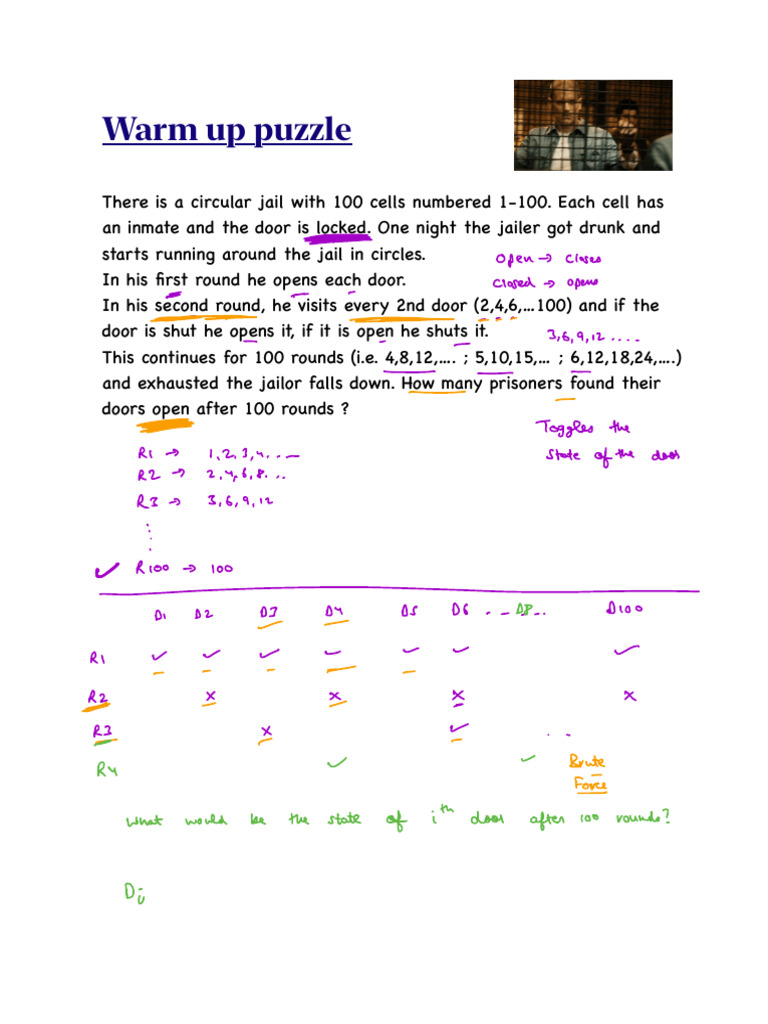 Warm up puzzle
There is a circular jail with 100 cells numbered 1-100. Each cell has
an inmate and the door is locked. One night the jailer got drunk and
starts running around the jail in circles.
Open → closes
In his first round he opens each door.
Closed → opens
In his second round, he visits every 2nd door (2,4,6,...100) and if the
door is shut he opens it, if it is open he shuts it.
3,6,9,12 ....
This continues for 100 rounds (i.e. 4,8,12,.... ; 5,10,15,... ; 6,12,18,24,....)
and exhausted the jailor falls down. How many prisoners found their
doors open after 100 rounds ?
Toggles the
state of the door
R1 → 1,2,3,4...
R2 → 2,4,6,8...
R3 → 3,6,9,12
✓ R100 → 100
D1 D2 D3 D4 D5 D6 .. D8.. D100
R1 ✓ ✓ ✓ ✓ ✓ ✓ ✓
R2 x x x x
R3 x ✓ ..
R4 ✓ ✓
Brute
Force
What would be the state of ith door after 100 rounds?
Di